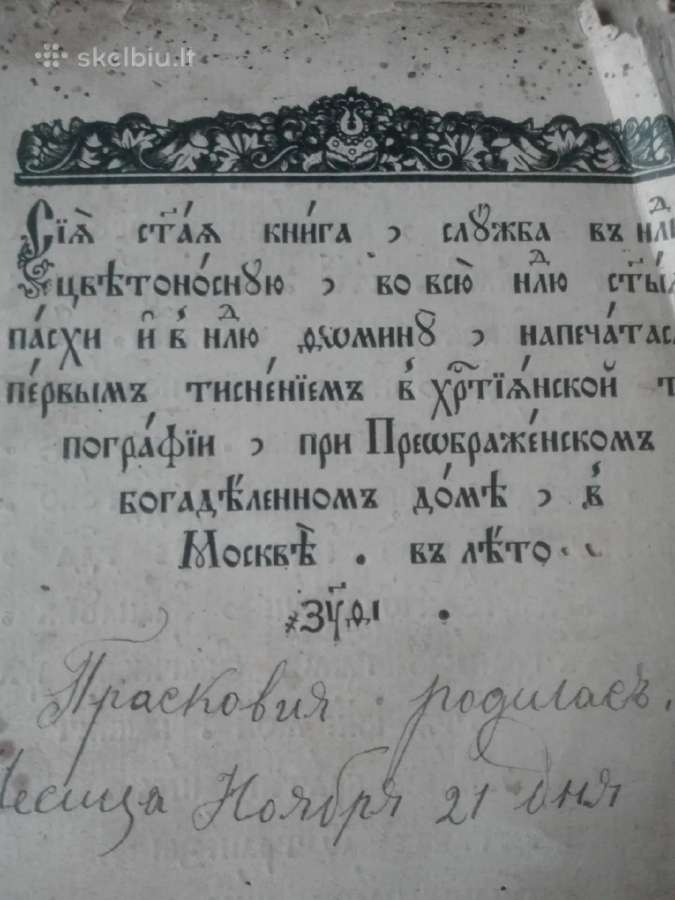 Сїѧ̀ ст҃а́ѧ кни́га , слꙋ́жба въ нлⷣ
цвѣтоно́сную , во всю̀ нлⷣю ст҃ы́
па́схи и҆ в̾ нлⷣю ѳѡминꙋ̀ , напеча́тас
пе́рвымъ тисне́нїемъ в̾ хрⷭ҇тїѧ́нской т
погра́фїи , при Преѡбраже́нскомъ
богадѣ́ленномъ до́мѣ , в̾
Москвѣ̀ . въ лѣ́то .
҂зу҃ѳі .
Прасковия родиласъ.
Месица Ноября 21 дня
skelbiu.lt